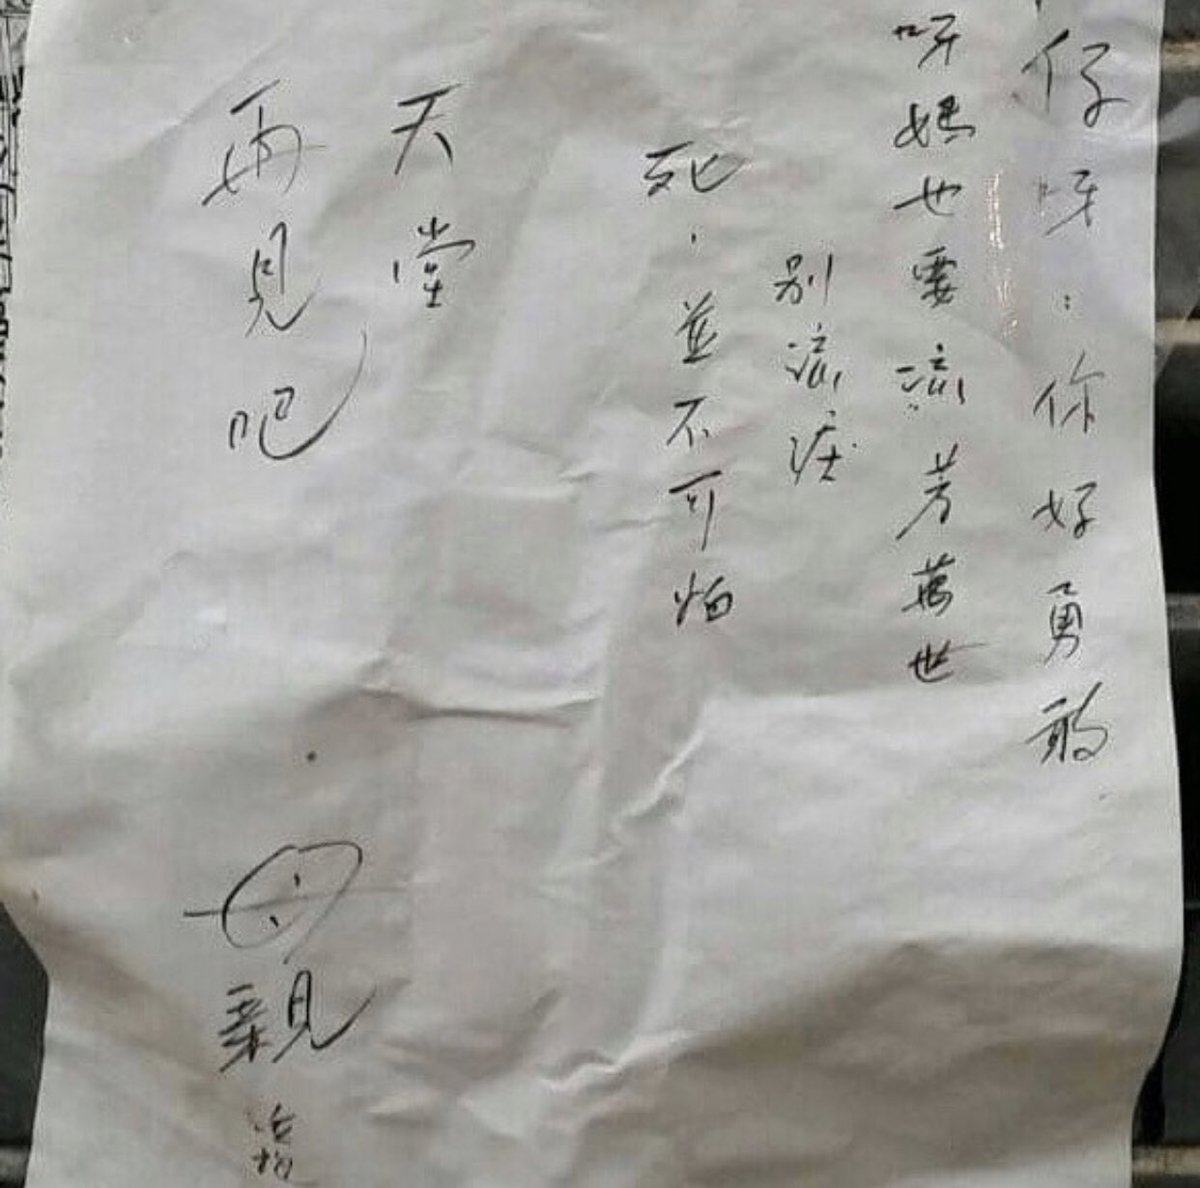 仔呀：你好勇敢
呀媽也要流芳萬世
別流淚
死，並不可怕
天堂
再見吧
母親